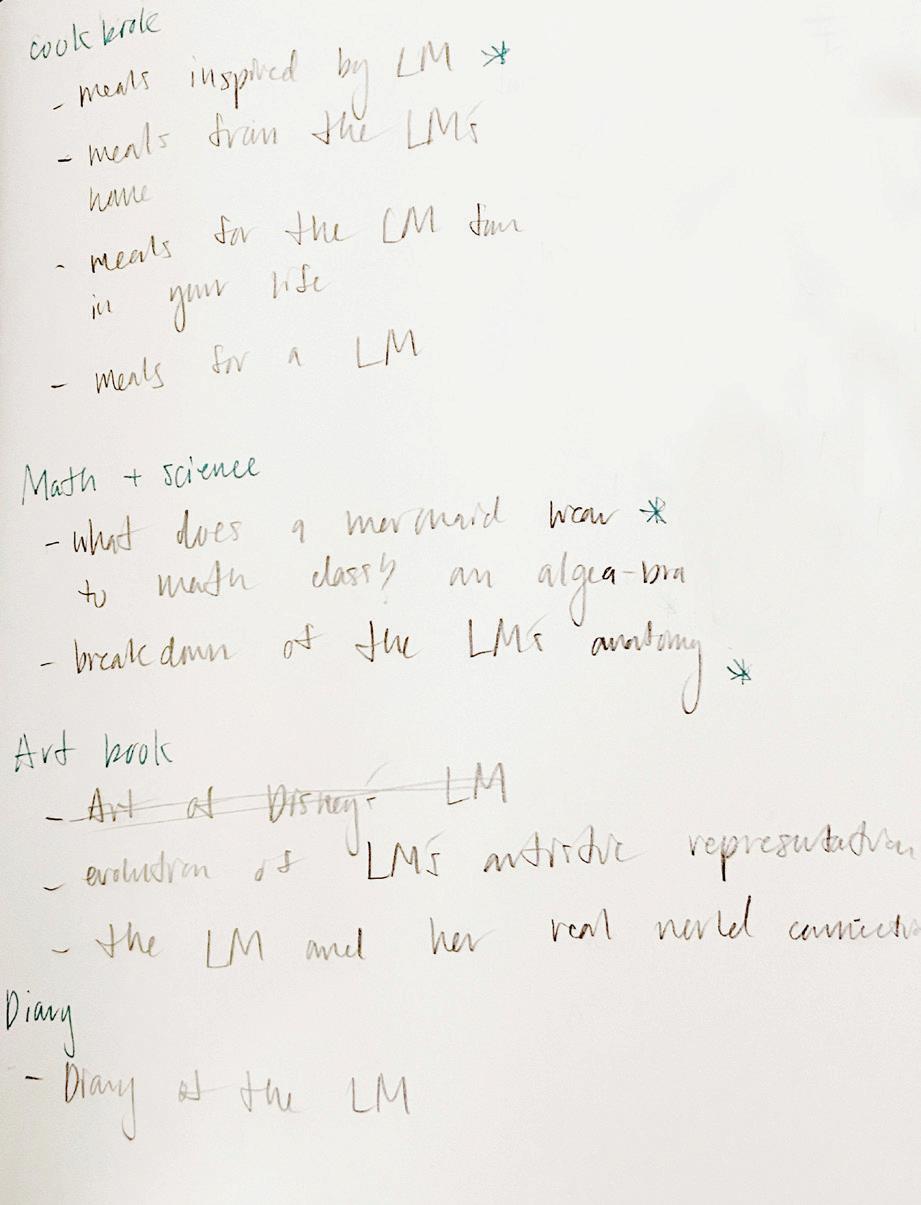 cook book
- meals inspired by LM *
- meals from the LM's
home
- meals for the LM fan
in your life
- meals for a LM
Math + science
- what does a mermaid wear *
to math class? an algea-bra
- breakdown of the LM's anatomy
*
Art book
- Art of Disney's LM
- evolution of LM's artistic representation
- the LM and her real world connectio
Diary
- Diary of the LM